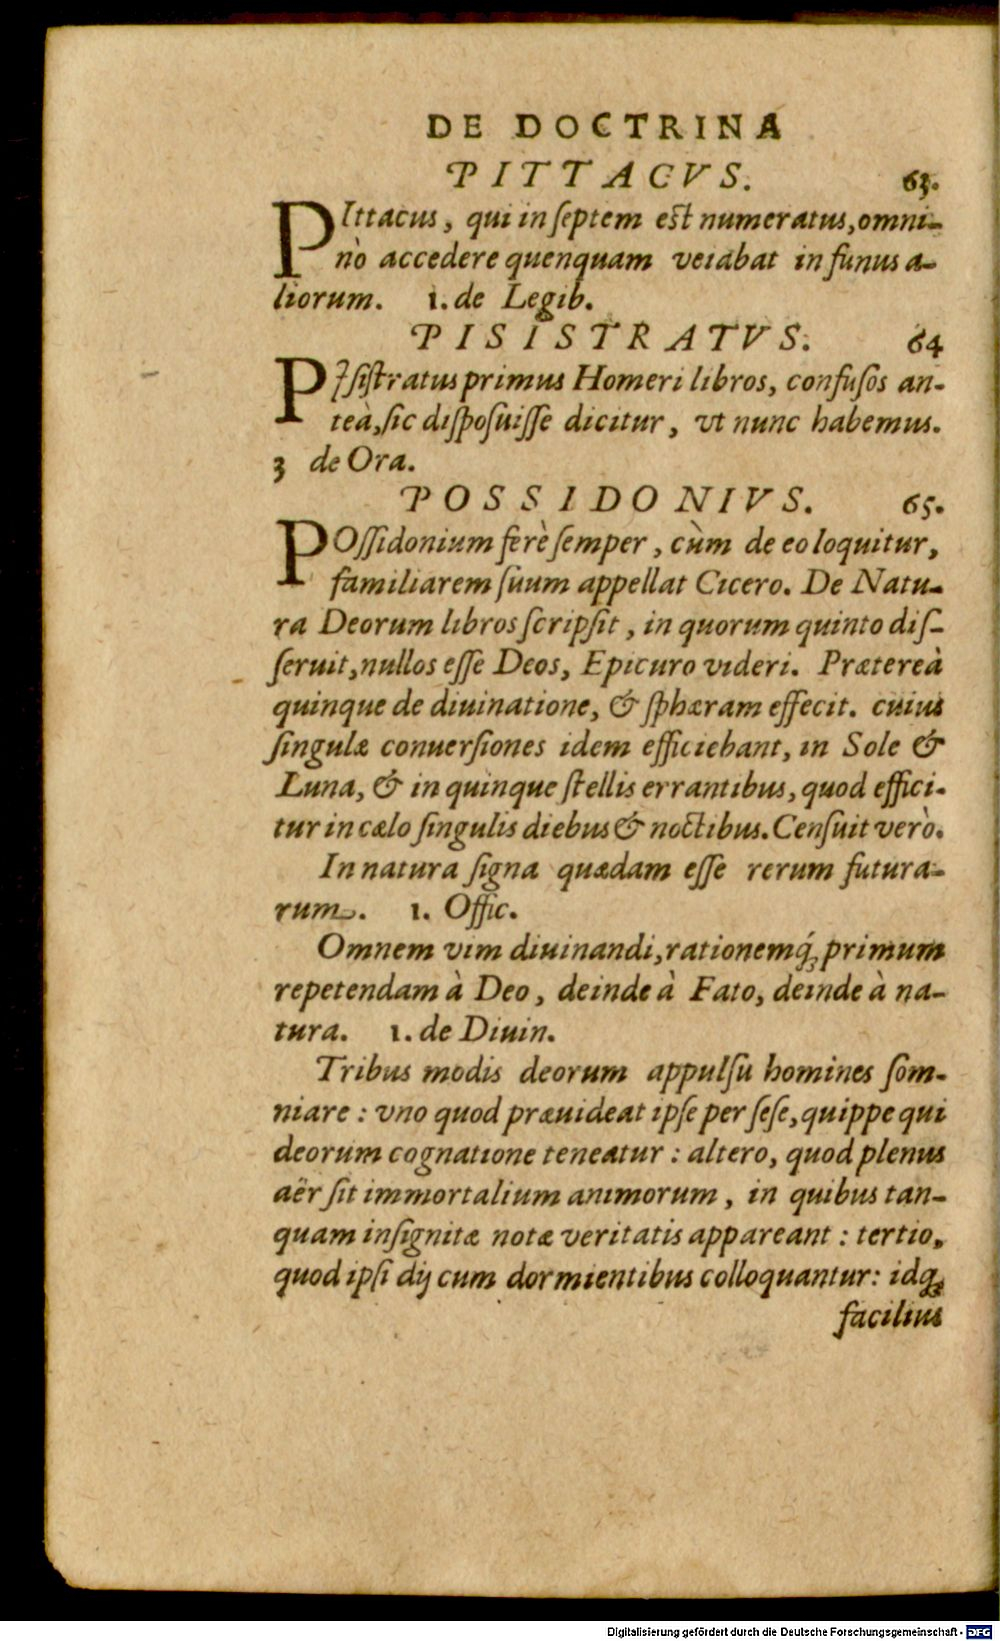 DE DOCTRINA
PITTACVS. 63.
PIttacus, qui in ſeptem eſt numeratus, omni-
nò accedere quenquam vetabat in funus a-
liorum. 1. de Legib.
PISISTRATVS. 64
PIſiſtratus primus Homeri libros, confuſos an-
teà, ſic diſpoſuiſſe dicitur, vt nunc habemus.
3 de Ora.
POSSIDONIVS. 65.
POſſidonium ferè ſemper, cùm de eo loquitur,
familiarem ſuum appellat Cicero. De Natu-
ra Deorum libros ſcripſit, in quorum quinto diſ-
ſeruit, nullos eſſe Deos, Epicuro videri. Prætereà
quinque de diuinatione, & ſphæram effecit. cuius
ſingulæ conuerſiones idem efficiebant, in Sole &
Luna, & in quinque ſtellis errantibus, quod effici-
tur in cælo ſingulis diebus & noctibus. Cenſuit verò.
In natura ſigna quædam eſſe rerum futura-
rum. 1. Offic.
Omnem vim diuinandi, rationemq́; primum
repetendam à Deo, deinde à Fato, deinde à na-
tura. 1. de Diuin.
Tribus modis deorum appulſu homines ſom-
niare : vno quod præuideat ipſe per ſeſe, quippe qui
deorum cognatione teneatur : altero, quod plenus
aër ſit immortalium animorum, in quibus tan-
quam inſignitæ notæ veritatis appareant : tertio,
quod ipſi dij cum dormientibus colloquantur: idq;
facilius
Digitalisierung gefördert durch die Deutsche Forschungsgemeinschaft - DFG